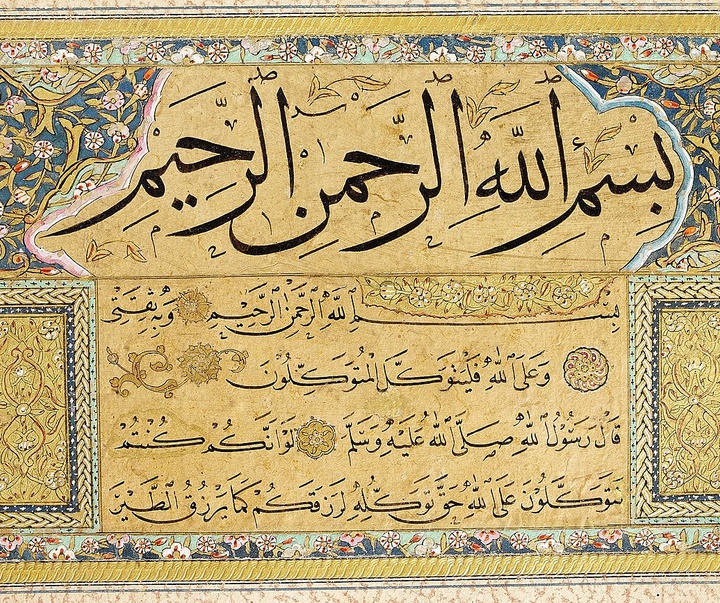 بِسْمِ اللّٰهِ الرَّحْمٰنِ الرَّحِيمِ
بِسْمِ اللّٰهِ الرَّحْمٰنِ الرَّحِيمِ وَبِهِ ثِقَتِي
وَعَلَى اللّٰهِ فَلْيَتَوَكَّلِ الْمُتَوَكِّلُونَ
قَالَ رَسُولُ اللّٰهِ صَلَّى اللّٰهُ عَلَيْهِ وَسَلَّمَ لَوْ اَنَّكُمْ كُنْتُمْ
تَتَوَكَّلُونَ عَلَى اللّٰهِ حَقَّ تَوَكُّلِهِ لَرَزَقَكُمْ كَمَا يَرْزُقُ الطَّيْرَ